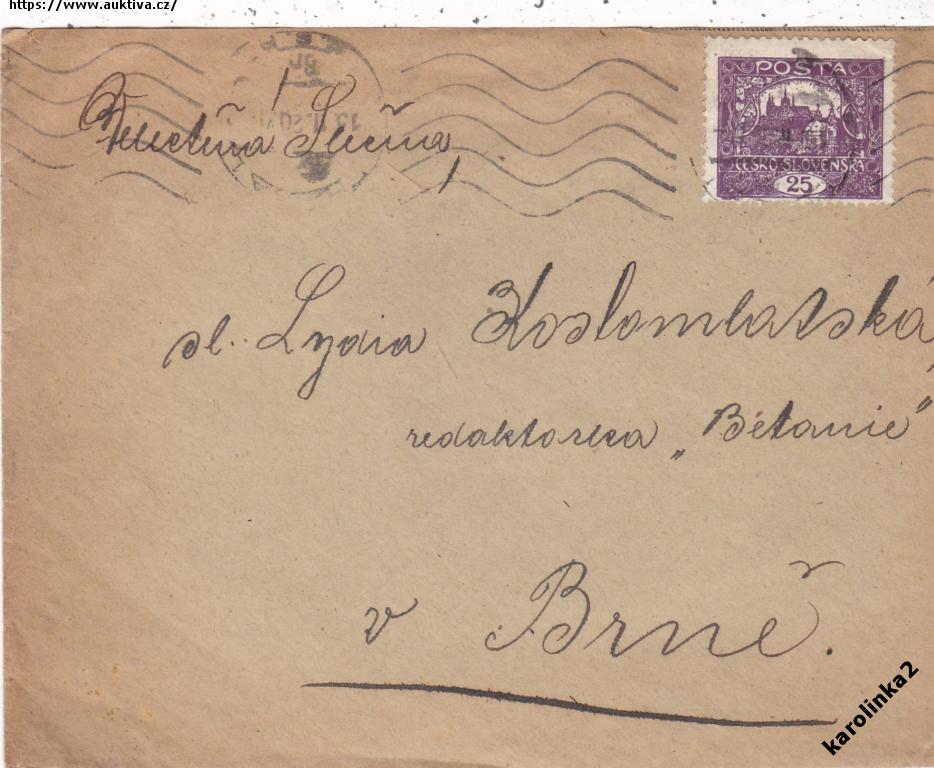 https://www.auktiva.cz/
Slečna,
POSTA
ČESKO-SLOVENSKÁ
25
sl. Lydia Kostomlatská,
redaktorka „Bétanie“
v Brně.
karolinka2